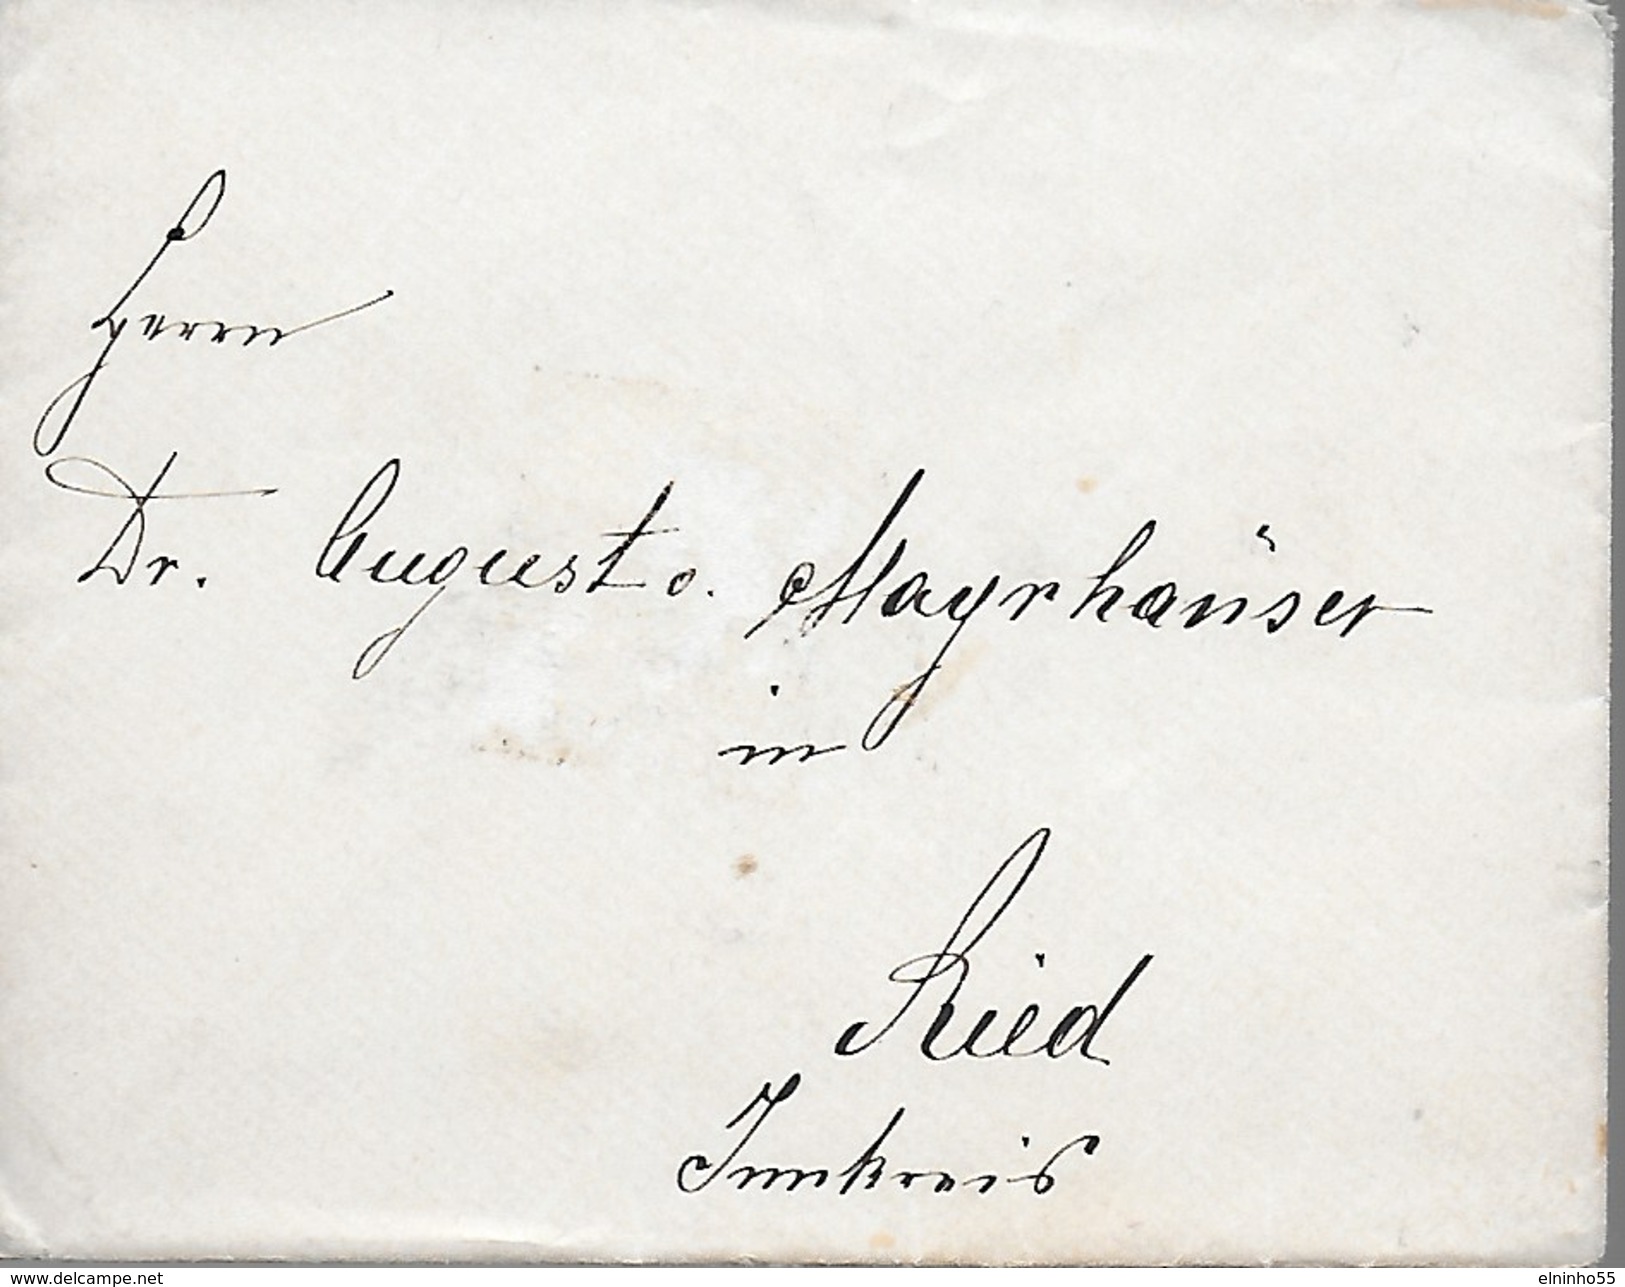 Herrn
Dr. August v. Mayrhäuser
in
Ried
Innkreis
www.delcampe.net
elninho55